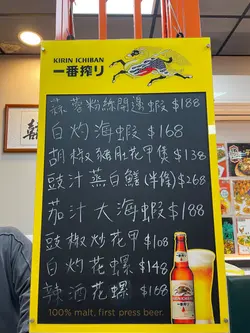 KIRIN ICHIBAN
一番搾り
蒜蓉粉絲開邊蝦 $188
白灼海蝦 $168
胡椒豬肚花甲煲 $138
豉汁蒸白鱔(半條) $268
茄汁大海蝦 $188
豉椒炒花甲 $108
白灼花螺 $148
辣酒花螺 $168
100% malt, first press beer.